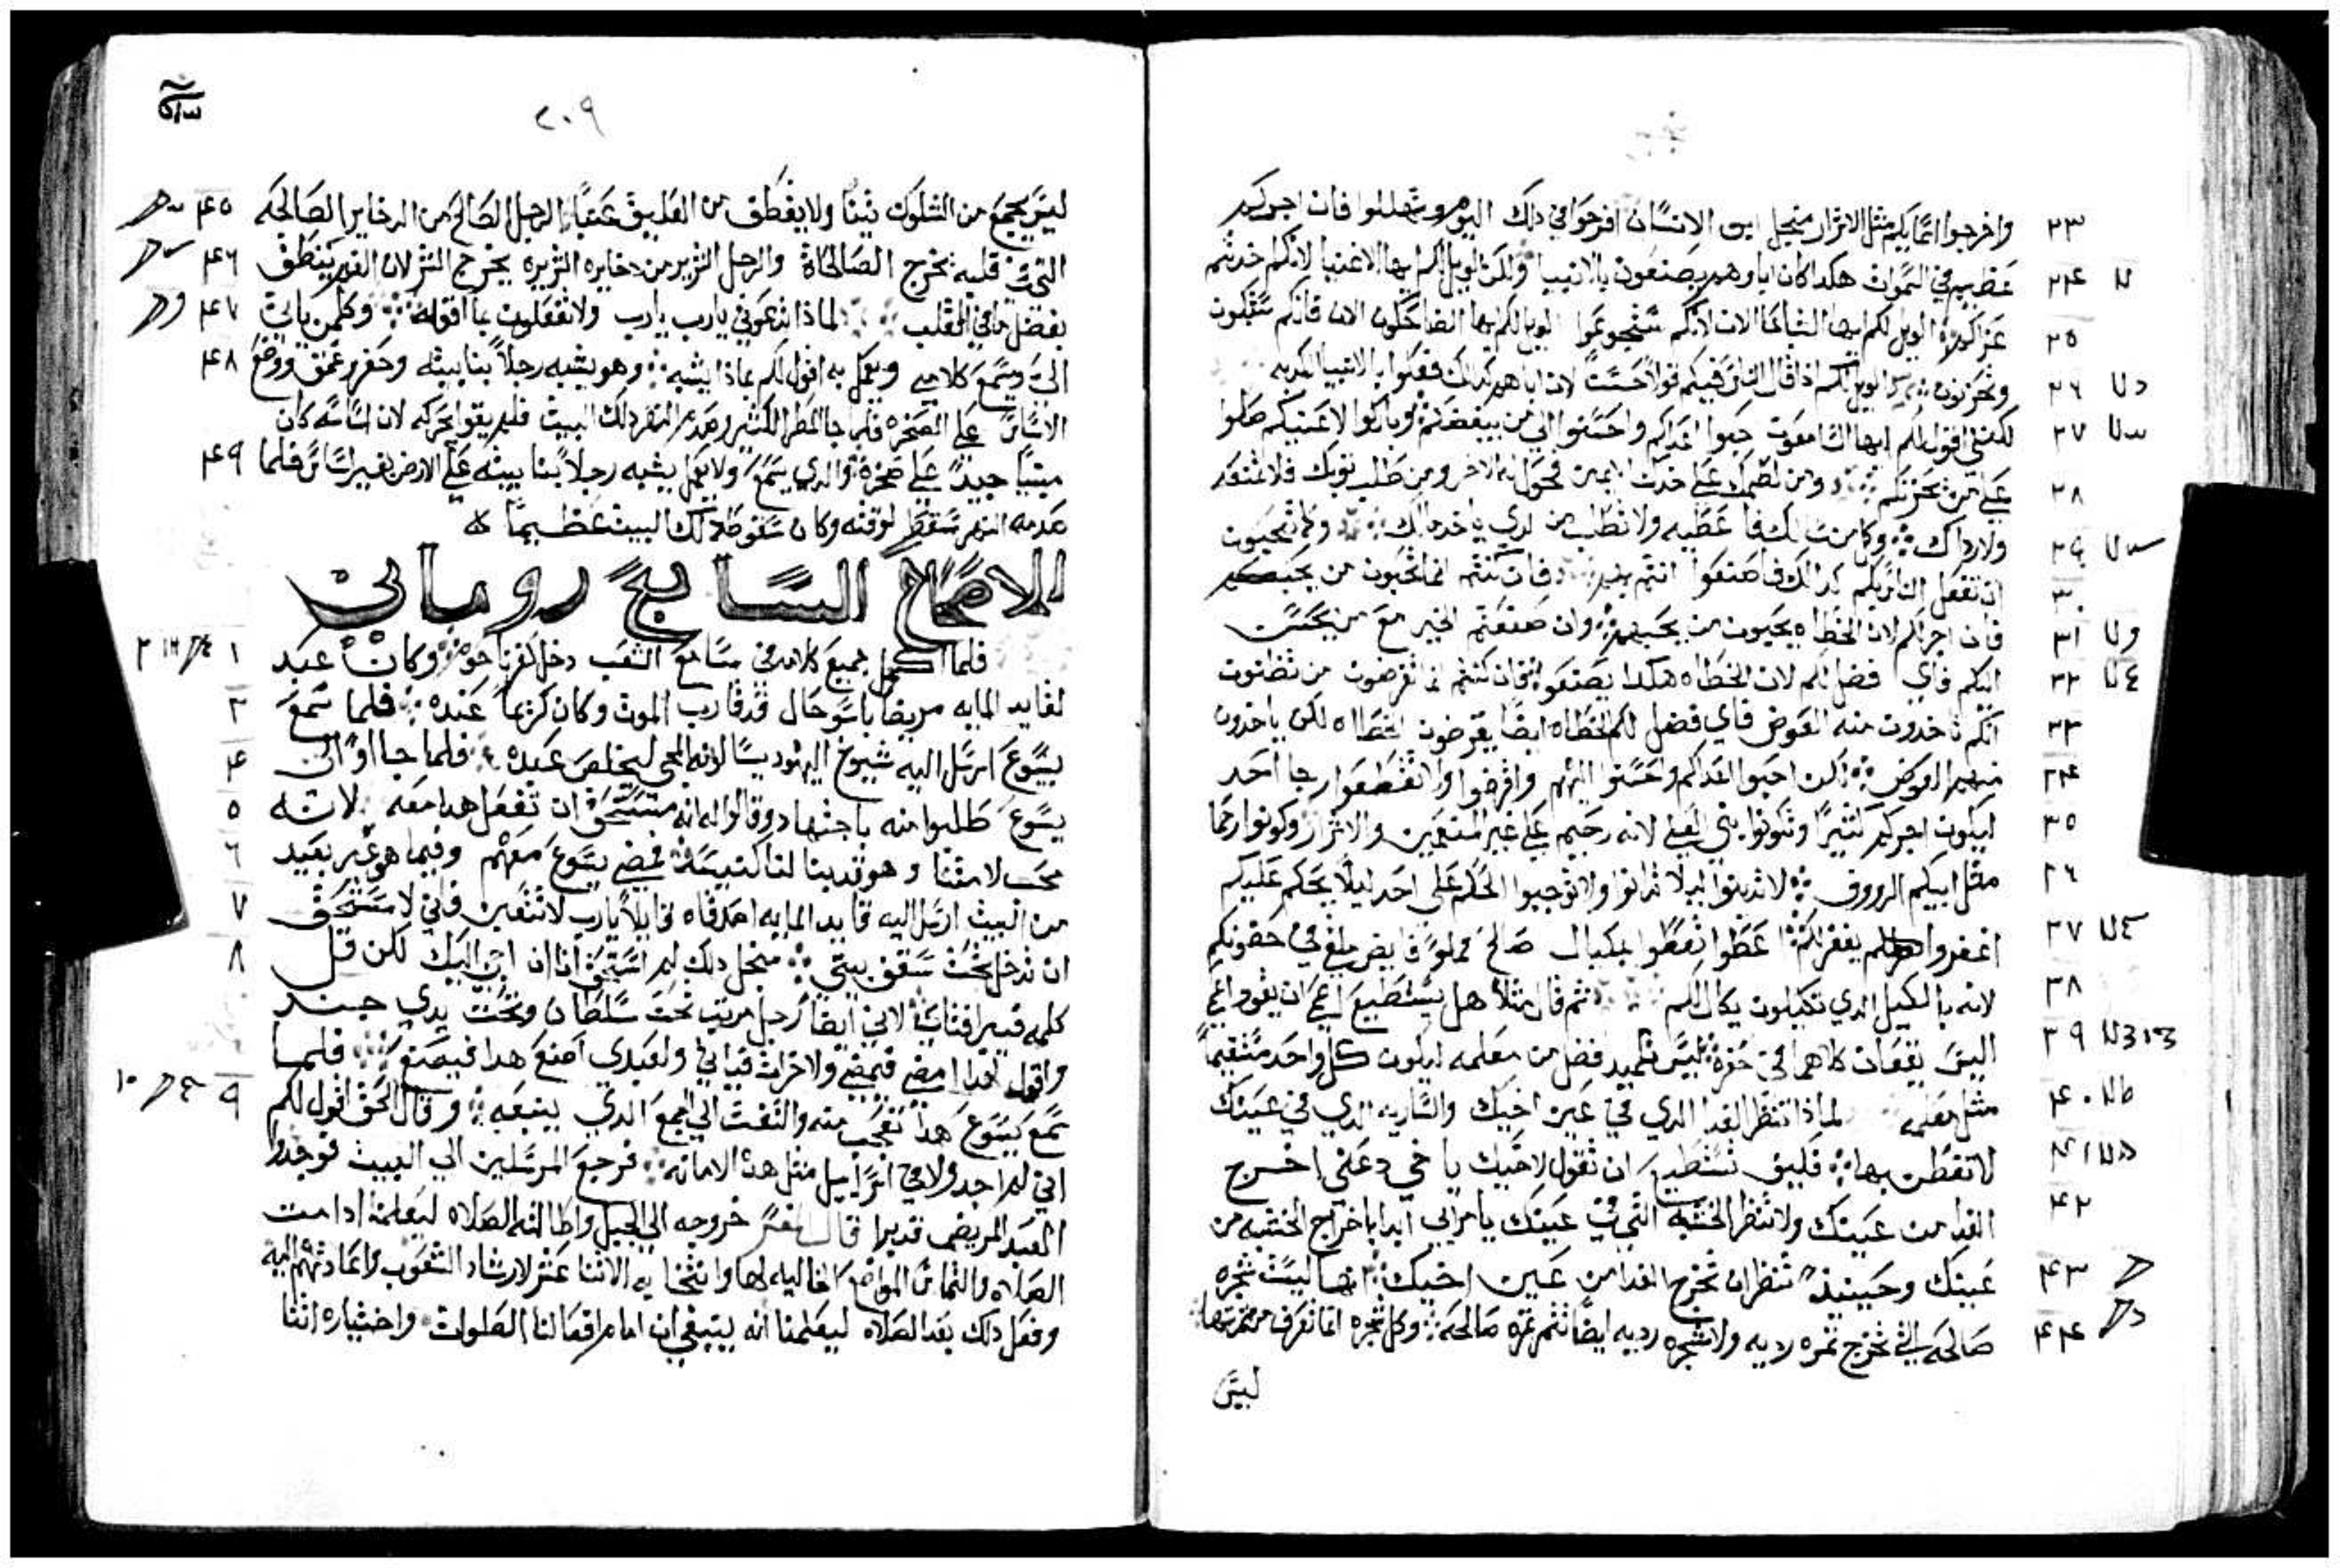 واخرجوا اسمايكم مثل الاشرار منجل ابن الانسان افرحوا في دلك اليوم وتهللوا فان اجركم
٢٣
عظيم في السموات هكدا كان اباوهم يصنعون بالانبيا ولكن الويل لكم ايها الاغنيا لانكم خدتم
٢٤
عزاكم الويل لكم ايها الشباعا الان لانكم ستجوعوا الويل لكم ايها الضاحكون الان فانكم ستبكون
٢٥
وتحزنون الويل لكم ادا قال الناس فيكم قولا حسنًا لان اباهم كدلك فعلوا بالانبيا الكدبه
٢٦
لكنني اقول لكم ايها السامعون حبوا اعداكم واحسنوا الي من يبغضكم وباركوا لاعنيكم صلوا
٢٧
علي من يحزنكم ومن لطمك علي خدك الايمن فحول له الاخر ومن طلب توبك فلا تمنعه
٢٨
ولا رداك وكل من سالك فاعطيه ولا تطلب من الدي ياخد مالك وكما تحبون
٢٩
ان تفعل الناس بكم كدالك فاصنعوا انتم بهم فان كنتم انما تحبون من يحبكم
٣٠
فان اجر لكم لان الخطاه يحبون من يحبهم وان صنعتم الخير مع من يحسن
٣١
اليكم فاي فضل لكم لان الخطاه هكدا يصنعوا فان كنتم انما تقرضون من تظنون
٣٢
انكم تاخدون منه العوض فاي فضل لكم الخطاه ايضًا يقرضون الخطااه لكن ياخدون
٣٣
منهم العوض لكن احبوا اعداكم واحسنوا اليهم واقرضوا ولا تقطعوا رجا احد
٣٤
ليكون اجركم كثيرًا وتكونوا بني العلي لانه رحيم علي غير المنعمين والاشرار وكونوا رحما
٣٥
مثل ابيكم الرووف لا تدينوا ليلا تدانوا ولا توجبوا الحكم علي احد ليلا يحكم عليكم
٣٦
اغفروا يغفر لكم عطوا تعطوا بمكيال صالح مملو فايض يلقي في حضونكم
٣٧
لانه بالكيل الدي تكيلون يكال لكم ثم قال مثلا هل يستطيع اعمي ان يقود اعمي
٣٨
اليس يقعان كلاهما في حفره ليس تلميد افضل من معلمه ليكون كل واحد مستقيمًا
٣٩
مثل معلمه لمادا تنظر القدا الدي في عين اخيك والساريه الدي في عينك
٤٠
لا تفطن بها فكيف تستطيع ان تقول لاخيك يا خي دعني اخرج
٤١
القدا من عينك ولا تنظر الخشبه التي في عينك يا مرايي ابدا باخراج الخشبه من
٤٢
عينك وحينيد تنظر ان تخرج القدا من عين اخيك انها ليست شجره
٤٣
صالحه التي تخرج ثمره رديه ولا شجره رديه ايضًا تثمر ثمرة صالحه وكل شجره انما تعرف من ثمرتها
٤٤
ليس
٢٠٩
ليس يجمع من الشوك تينًا ولا يقطف من العليق عنبًا الرجل الصالح من الدخاير الصالحه
٤٥
التي في قلبه يخرج الصالحاة والرجل الشرير من دخايره الشريره يخرج الشر لان الفم ينطق
٤٦
بفضل ما في القلب لمادا تدعوني يارب يارب ولا تفعلون بما اقوله وكلمن ياتي
٤٧
الي ويسمع كلامي ويعمل به اقول لكم بمادا يشبه وهو يشبه رجلاً بنا بيته وحفر وعمق ووضع
٤٨
الاساس علي الصخره فلما جا المطر الكثير وصدم النهر دلك البيت فلم يقوا يحركه لان اساسه كان
مبنيًا جيد علي صخرة والدي يسمع ولا يعمل يشبه رجلاً بنا بيته علي الارض بغير اساس فلما
٤٩
صدمه النهر سقط لوقته وكان سقوط دلك البيت عظيمًا
الاصحاح السابع روماني
فلما اكمل جميع كلامه في مسامع الشعب دخل كفرناحوم وكان عبد
١
لقايد المايه مريضًا باسو حال قد قارب الموت وكان كريمًا عنده فلما سمع
٣
بيسوع ارسل اليه شيوخ اليهود يسالونه المجي ليخلص عبده فلما جااو الي
٤
يسوع طلبوا منه باجتهاد وقالوا له انه مستحق ان تفعل هدا معه لانه
٥
محب لامتنا وهو قد بنا لنا كنيسه فمضي يسوع معهم وفيما هو غير بعيد
٦
من البيت ارسل اليه قايد المايه اصدقاه قايلاً يارب لا تتعين فاني لا مستحق
٧
ان تدخل تحت سقف بيتي منجل دلك لم استحق انا ان اتي اليك لكن قل
٨
كلمه فيبرا فتاي لاني ايضا رجل مرتب تحت سلطان وتحت يدي جند
واقول لهدا امضي فيمضي ولاخر ات فياتي ولعبدي اصنع هدا فيصنع فلما
٩
سمع يسوع هدا تعجب منه والتفت الي الجمع الدي يتبعه وقال الحق اقول لكم
اني لم اجد ولا في اسراييل مثل هده الامانه فرجع المرسلين الي البيت فوجدوا
١٠
العبد المريض قد برا قال المفسر خروجه الي الجبل واطالته الصلاه ليعلمنا ادامت
الصلاه والتماس المواضع الخاليه لها وانتخابه الاثنا عشر لارشاد الشعوب واعادتهم اليه
وفعل دلك بعد الصلاه ليعلمنا انه ينبغي ان امام افعالنا الصلوات واختياره اثنا